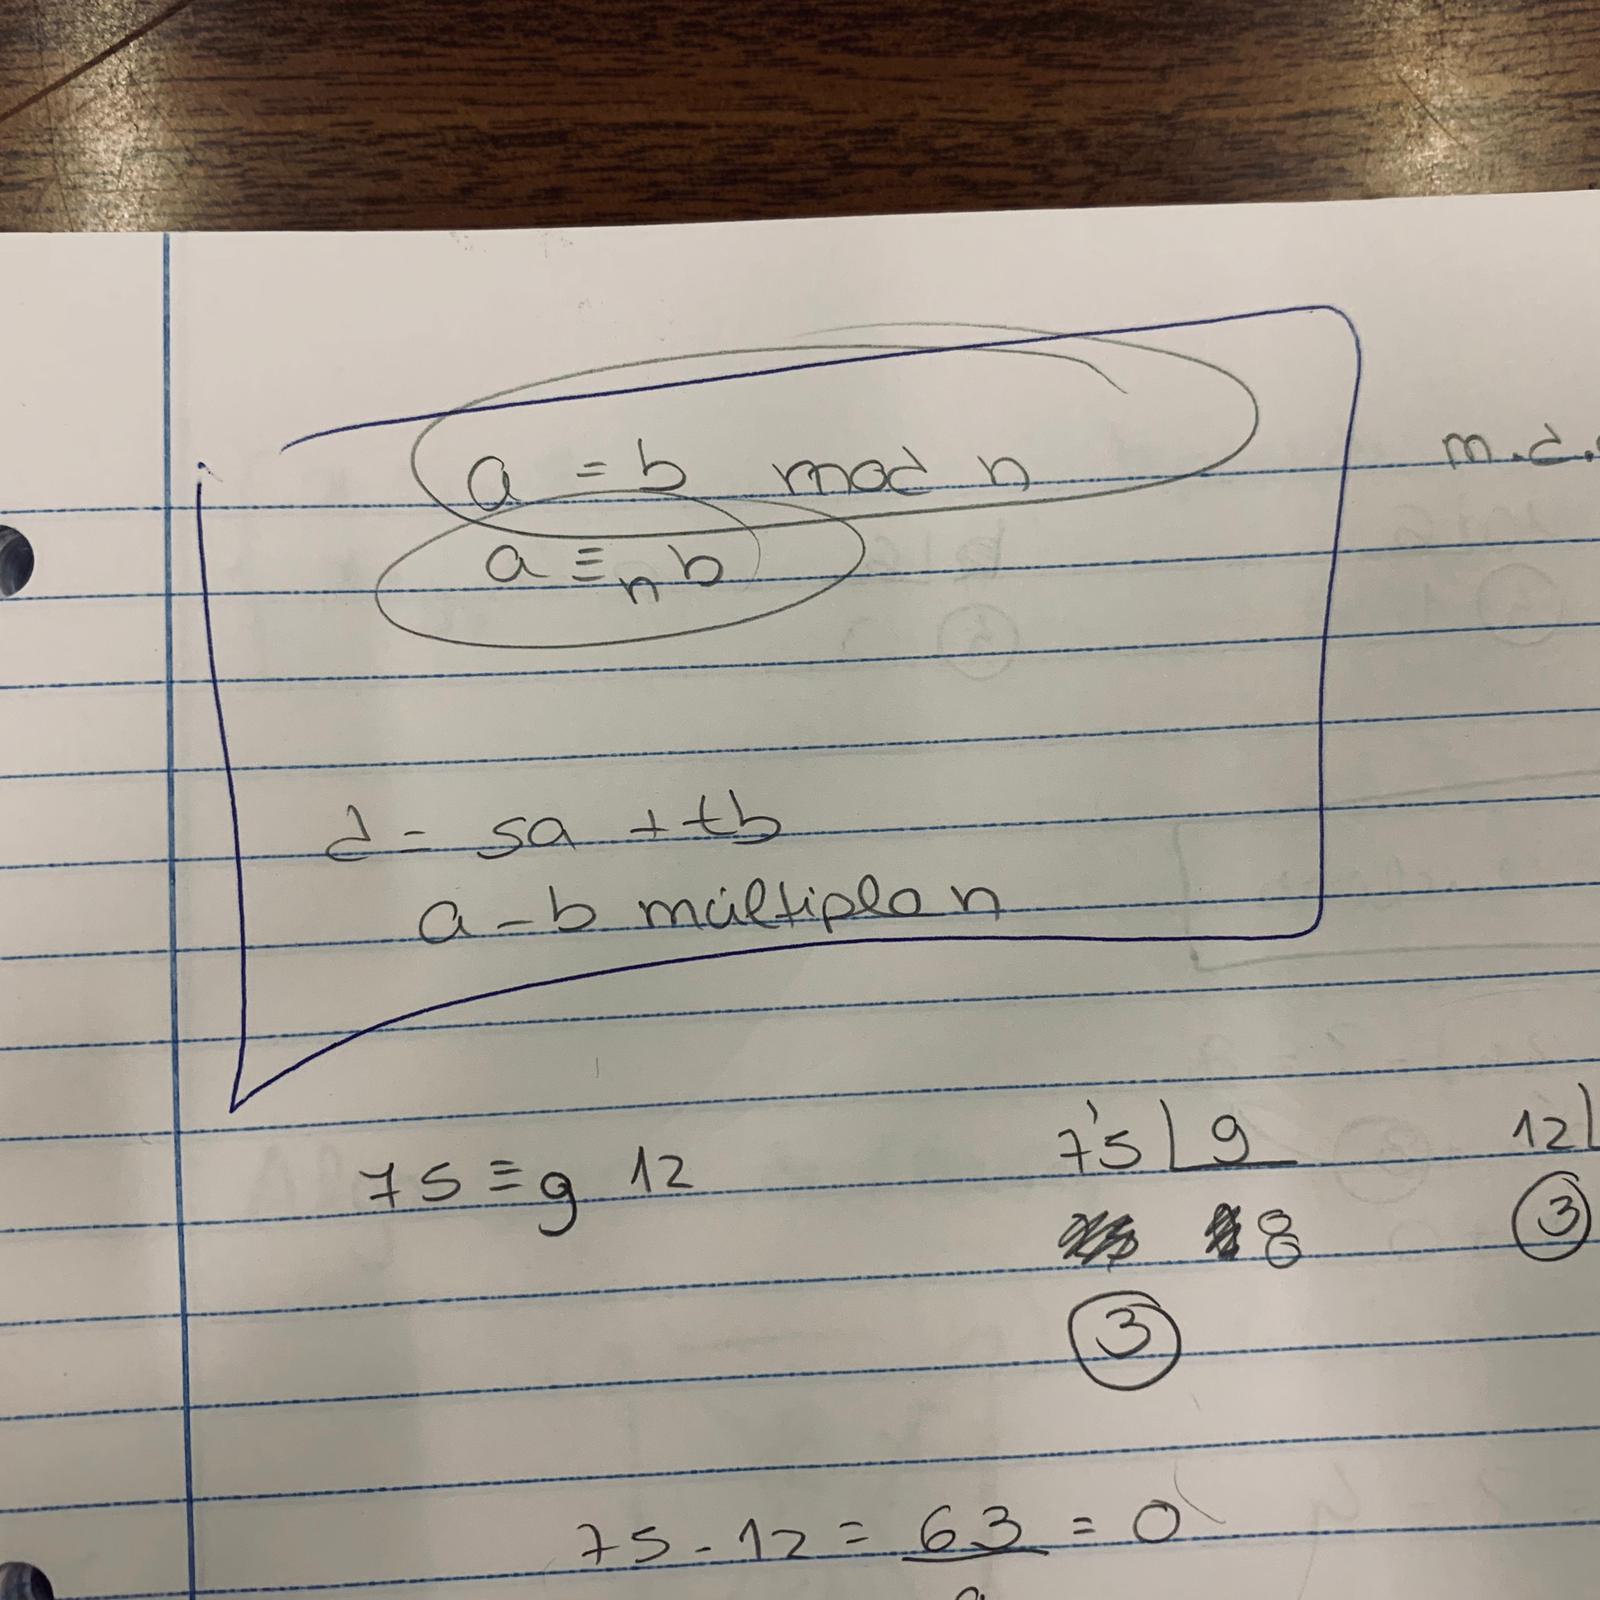 a = b mod n
m.d.
a ≡n b
d = sa + tb
a - b múltiplo n
75 ≡9 12
75 | 9
12|
8
3
3
75 - 12 = 63 = 0